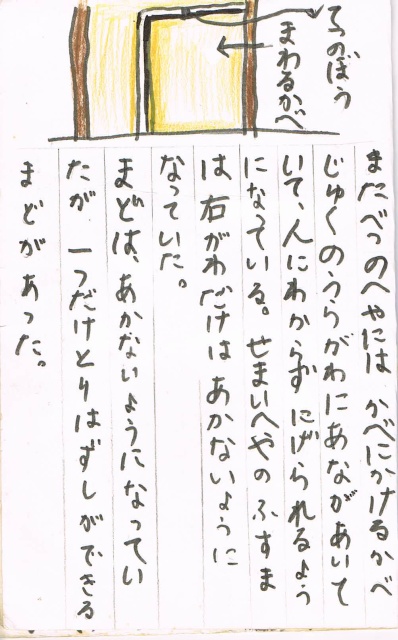 てつのぼう
まわるかべ
まだべつのへやには かべにかけるかべ
じゅくのうらがわにあながあいて
いて、人にわからず にげられるよう
になっている。せまいへやのふすま
は 右がわだけは あかないように
なっていた。
まどは、あかないようになってい
たが 一つだけとりはずしができる
まどがあった。